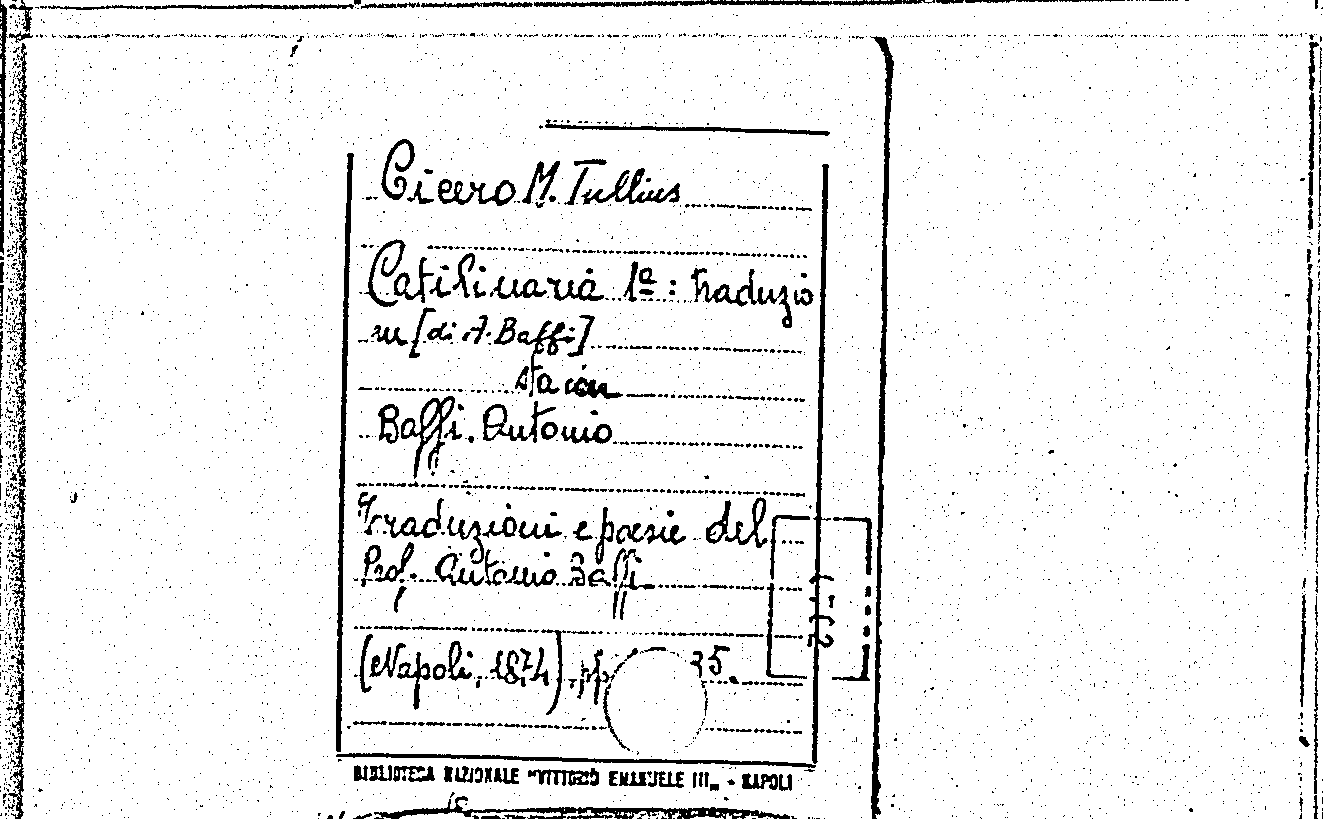 Cicero M. Tullius
Catilinaria 1ª: traduzio
ne [di A. Baffi]
sta con
Baffi. Antonio
Traduzioni e poesie del
Prof. Antonio Baffi.
(Napoli, 1874), pp 35.
BIBLIOTECA NAZIONALE "VITTORIO EMANUELE III„ - NAPOLI